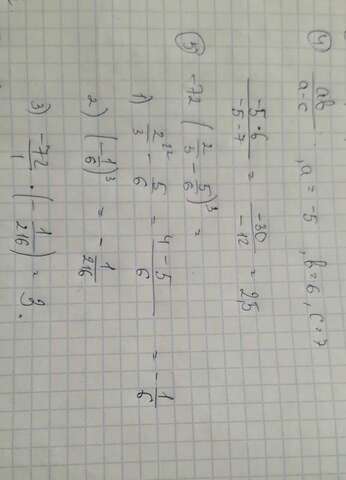 4) ab/a-c, a = -5, b=6, c=7
-5·6/-5-7 = -30/-12 = 2,5
5) -72 (2/3 - 5/6)³ =
1) 2/3 ² - 5/6 = 4-5/6 = -1/6
2) (-1/6)³ = -1/216
3) -72/1 · (-1/216) = 3.